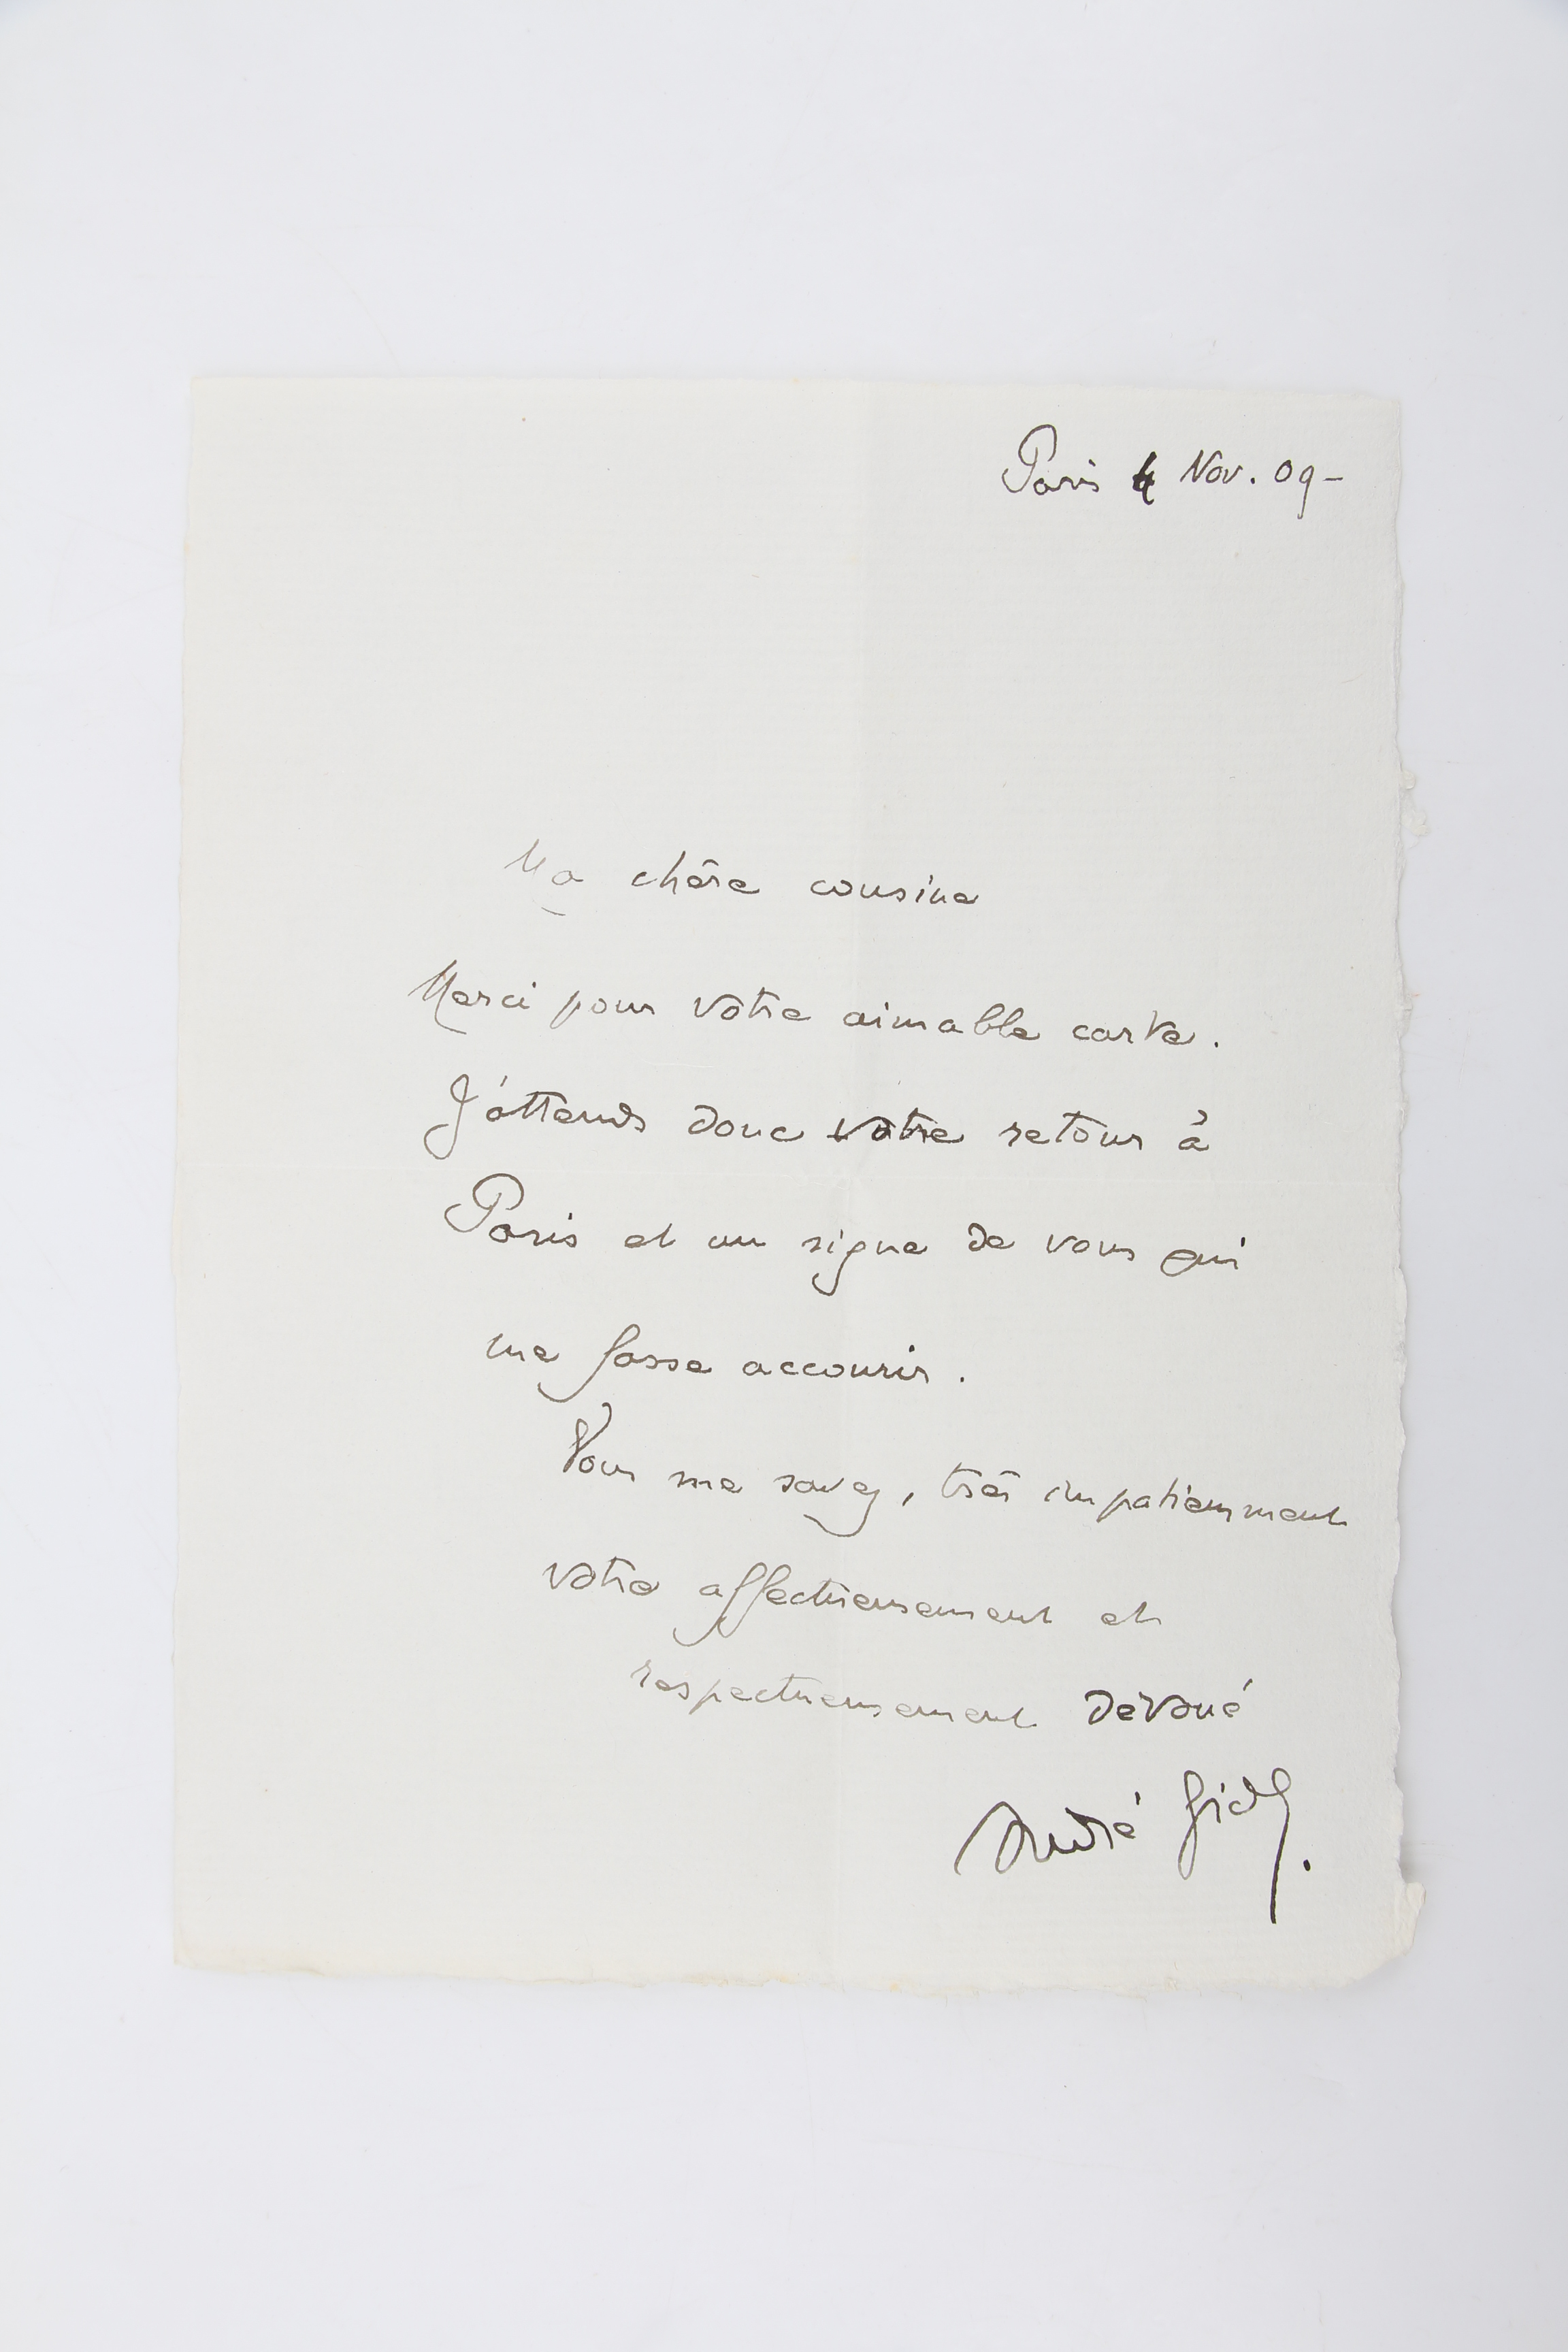 Paris 4 Nov. 09 –
Ma chère cousine
Merci pour votre aimable carte.
J'attends donc votre retour à
Paris et un signe de vous qui
me fasse accourir.
Vous me savez, très impatiemment
votre affectueusement et
respectueusement dévoué
André Gide.